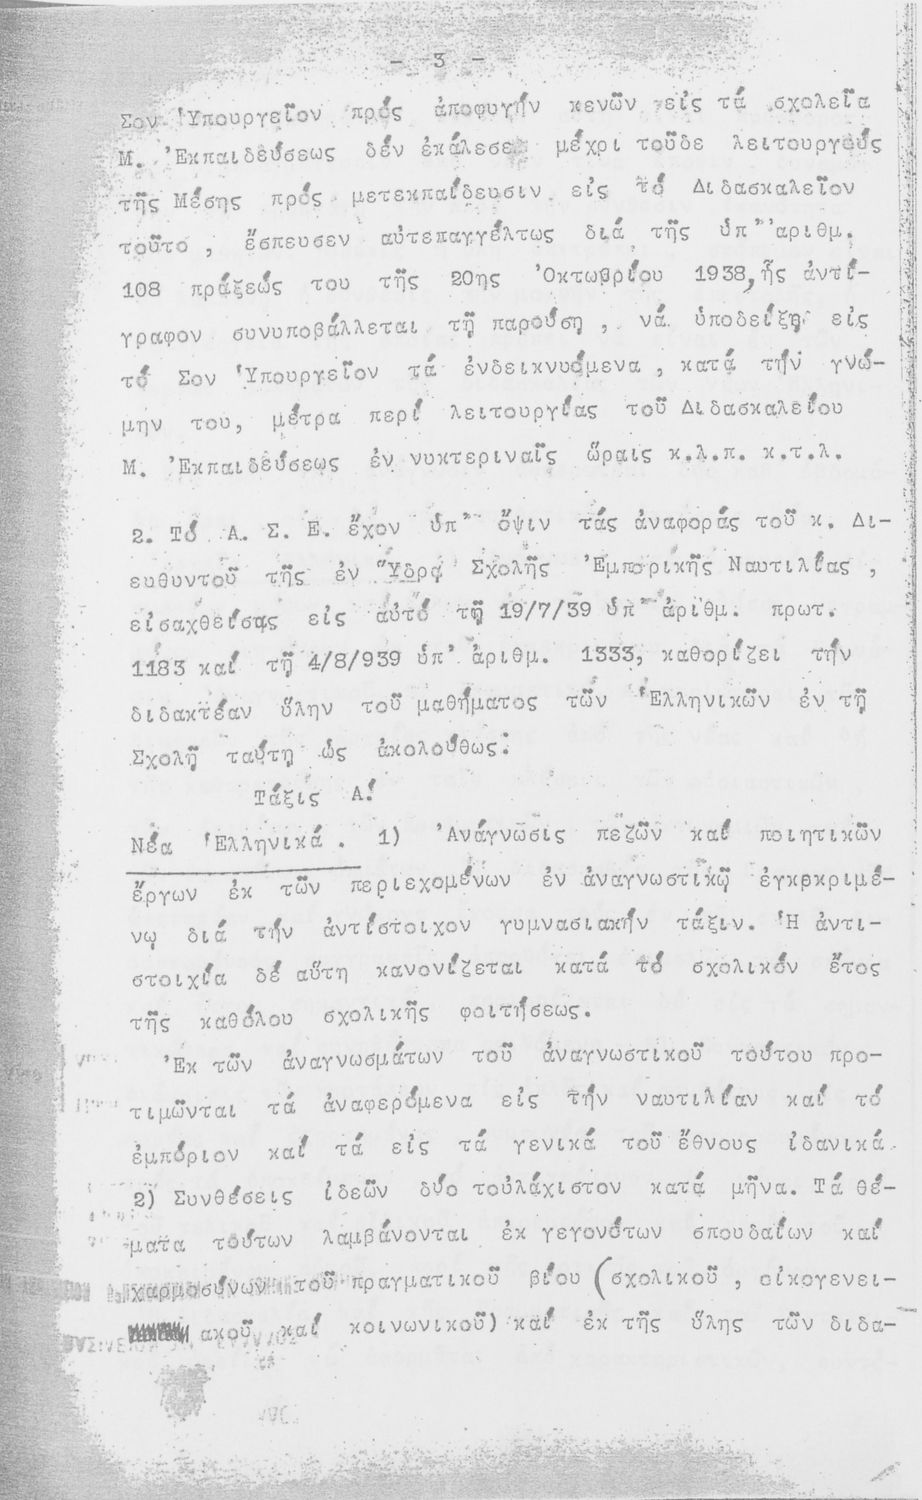 - 3 -
Σον Ὑπουργεῖον πρός ἀποφυγήν κενῶν εἰς τά σχολεῖα
Μ. Ἐκπαιδεύσεως δέν ἐκάλεσε μέχρι τοῦδε λειτουργούς
τῆς Μέσης πρός μετεκπαίδευσιν εἰς τό Διδασκαλεῖον
τοῦτο, ἔσπευσεν αὐτεπαγγέλτως διά τῆς ὑπ' ἀριθμ.
108 πράξεώς του τῆς 20ης Ὀκτωβρίου 1938, ἧς ἀντί-
γραφον συνυποβάλλεται τῇ παρούσῃ, νά ὑποδείξῃ εἰς
τό Σον Ὑπουργεῖον τά ἐνδεικνυόμενα, κατά τήν γνώ-
μην του, μέτρα περί λειτουργίας τοῦ Διδασκαλείου
Μ. Ἐκπαιδεύσεως ἐν νυκτεριναῖς ὥραις κ.λ.π. κ.τ.λ.
2. Τό Α. Σ. Ε. ἔχον ὑπ' ὄψιν τάς ἀναφοράς τοῦ κ. Δι-
ευθυντοῦ τῆς ἐν Ὕδρᾳ Σχολῆς Ἐμπορικῆς Ναυτιλίας,
εἰσαχθείσας εἰς αὐτό τῇ 19/7/39 ὑπ' ἀριθμ. πρωτ.
1183 καί τῇ 4/8/939 ὑπ' ἀριθμ. 1333, καθορίζει τήν
διδακτέαν ὕλην τοῦ μαθήματος τῶν Ἑλληνικῶν ἐν τῇ
Σχολῇ ταύτῃ ὡς ἀκολούθως:
Τάξις Α!
Νέα Ἑλληνικά. 1) Ἀνάγνωσις πεζῶν καί ποιητικῶν
ἔργων ἐκ τῶν περιεχομένων ἐν ἀναγνωστικῷ ἐγκεκριμέ-
νῳ διά τήν ἀντίστοιχον γυμνασιακήν τάξιν. Ἡ ἀντι-
στοιχία δέ αὕτη κανονίζεται κατά τό σχολικόν ἔτος
τῆς καθόλου σχολικῆς φοιτήσεως.
Ἐκ τῶν ἀναγνωσμάτων τοῦ ἀναγνωστικοῦ τούτου προ-
τιμῶνται τά ἀναφερόμενα εἰς τήν ναυτιλίαν καί τό
ἐμπόριον καί τά εἰς τά γενικά τοῦ ἔθνους ἰδανικά.
2) Συνθέσεις ἰδεῶν δύο τοὐλάχιστον κατά μῆνα. Τά θέ-
ματα τούτων λαμβάνονται ἐκ γεγονότων σπουδαίων καί
χαρμοσύνων τοῦ πραγματικοῦ βίου (σχολικοῦ, οἰκογενει-
ακοῦ καί κοινωνικοῦ) καί ἐκ τῆς ὕλης τῶν διδα-